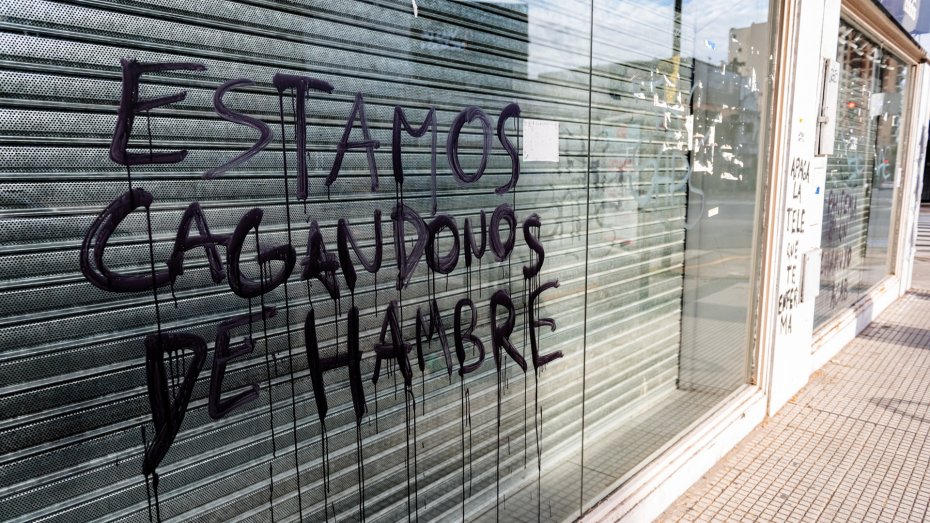 ESTAMOS
CAGANDONOS
DE HAMBRE
APAGA
LA
TELE
QUE
TE
ENFER
MA